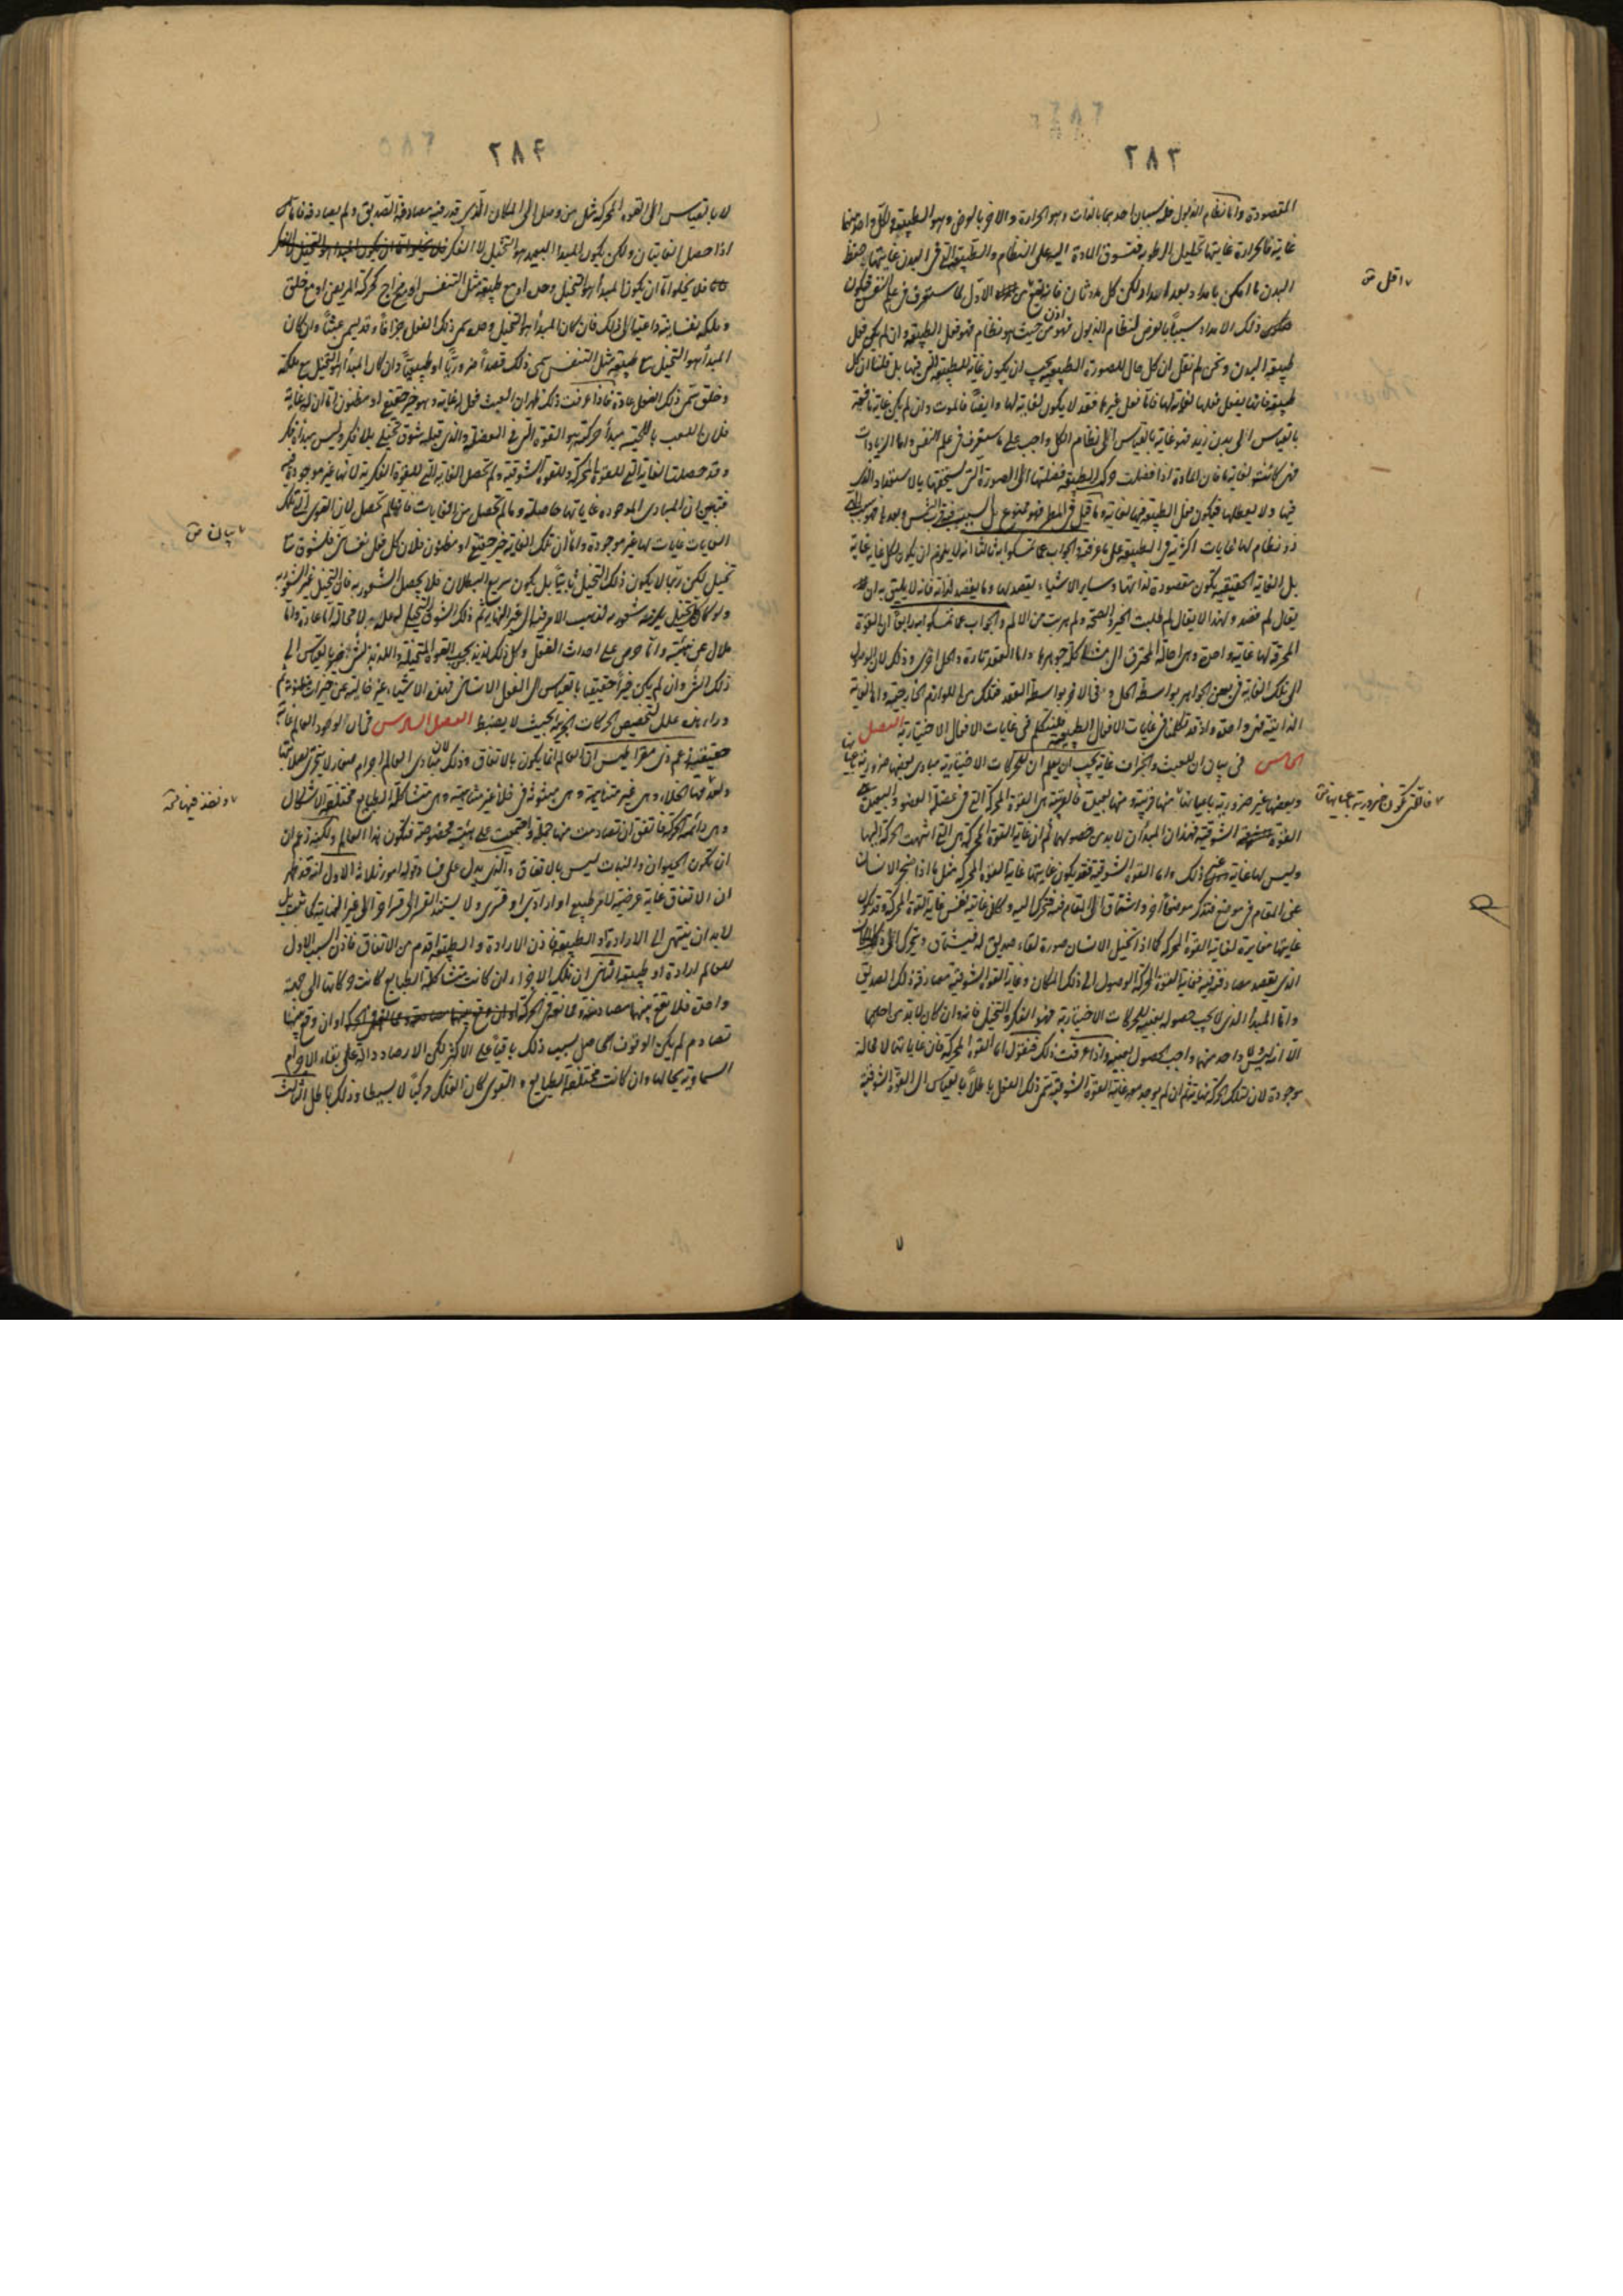 ٢٨٣
المقصودة واما نظام الذبول فله سببان احدهما بالذات وهو الحرارة والاخر بالعرض وهو الطبيعة ولكل واحد منهما
غاية فالحرارة غايتها تحليل الرطوبة فتسوق المادة اليه على النظام والطبيعة التي في البدن غايتها حفظ
البدن ما امكن بامداد بعد امداد ولكن كل مدد ثان فانه يقع الاول لما ستعرف في علم النفس فيكون
ذلك الامداد سببا بالعرض لنظام الذبول فهو اذن من حيث هو نظام فهو فعل الطبيعة وان لم يكن فعل
طبيعة البدن ونحن لم نقل ان كل حال للصورة الطبيعية يجب ان يكون غاية للطبيعة التي فيها بل قلنا ان كل
طبيعة فانها يفعل فعلها لغاية لها فاما فعل غيرها فقد لا يكون لغاية لها وايضا فالموت وان لم يكن غاية نافعة
بالقياس الى بدن زيد فهو غاية بالقياس الى نظام الكل واجب على ما سيعرف في علم النفس واما الزيادات
فهي كائنة لغاية ما فان المادة اذا فضلت حركت الطبيعة فضلتها الى الصورة التي يستحقها بالاستعداد الذي
فيها ولا يعطلها فيكون فعل الطبيعة فيها لغاية وما قيل في المطر فهو ممنوع بل السبب فيه قرب الشمس وبعدها
ذو نظام لها غايات اكثرية في الطبيعة على ما عرفته والجواب عما تمسكوا به ثالثا انه لا يلزم ان يكون لكل غاية غاية
بل الغاية الحقيقية يكون مقصودة لذاتها وساير الاشياء يقصد لها وما يقصد لذاته فانه لا يليق به ان
يقال لم قصد ولهذا لا يقال لم طلبت الخير والصحة ولم هربت من الالم والجواب عما تمسكوا به رابعا ان القوة
المحرقة لها غاية واحدة وهي احالة المحترق الى مشاكلة جوهرها واما العقد تارة والحل اخرى وذلك لان الوصول
الى تلك الغاية في بعض الجواهر بواسطة الحل وفي الاخر بواسطة العقد فتلك هي اللوازم الخارجية واما الغاية
الذاتية فهي واحدة واذ قد تكلمنا في غايات الافعال الطبيعية فلنتكلم في غايات الافعال الاختيارية الفصل
الخامس في بيان ان للعبث والجزاف غاية يجب ان يعلم ان للحركات الاختيارية مبادي بعضها ضرورية باعيانها
وبعضها غير ضرورية باعيانها منها قريبة ومنها بعيدة فالقريبة هي القوة المحركة التي في عضلة العضو والبعيدة
القوة الشوقية فهذان المبدآن لا بد من حصولهما ثم ان غاية القوة المحركة هي التي انتهت الحركة اليها
وليس لها غاية غير ذلك واما القوة الشوقية فقد يكون غايتها غاية القوة المحركة مثل ما اذا ضجر الانسان
عن المقام في موضع فتذكر موضعا اخر واشتاق الى المقام فيه فتحرك اليه وكان غايته نفس غاية القوة المحركة وقد يكون
غايتها مغايرة لغاية القوة المحركة كما اذا تخيل الانسان صورة لقاء صديق له فيشتاق ويتحرك الى ذلك المكان
الذي يقصد مصادفته فيه فغاية القوة المحركة الوصول الى ذلك المكان وغاية القوة الشوقية مصادفة ذلك الصديق
واما المبدأ الذي لا يجب حصوله بعينه للحركات الاختيارية فهو الفكر والتخيل فانه وان كان لا بد من احدهما
الا انه ليس ولا واحد منهما واجب الحصول بعينه واذا عرفت ذلك فنقول اما القوة المحركة فان غاياتها لا محالة
موجودة لان لتلك الحركة نهاية ثم ان لم يوجد معه غاية القوة الشوقية سمي ذلك الفعل باطلا بالقياس الى القوة الشوقية
اقل ص
٢٨٤
لا بالقياس الى القوة المحركة مثل من وصل الى المكان الذي قدر فيه مصادفة الصديق ولم يصادفه فاما
اذا حصل الغايتان ولكن يكون المبدأ البعيد هو التخيل لا الفكر
فلا يخلو اما ان يكون المبدأ هو التخيل وحده او مع طبيعة مثل التنفس او مع مزاج كحركة المريض او مع خلق
وملكة نفسانية داعية الى ذلك فان كان المبدأ هو التخيل وحده سمي ذلك الفعل جزافا وقد يسمى عبثا وان كان
المبدأ هو التخيل مع طبيعة مثل التنفس سمي ذلك قصدا ضروريا او طبيعيا وان كان المبدأ هو التخيل مع ملكة
وخلق سمي ذلك الفعل عادة فاذا عرفت ذلك ظهر ان العبث فعل له غاية وهو خير حقيقي او مظنون اما ان له غاية
فلان اللعب باللحية مبدأ حركته هو القوة التي في العضلة والذي قبله شوق تخيلي بلا فكر وليس مبدأه فكر
وقد حصلت الغاية التي للقوة المحركة وللقوة الشوقية ولم تحصل الغاية التي للقوة الفكرية لانها غير موجودة
فتبين ان المبادي الموجودة غاياتها حاصلة وما لم يحصل من الغايات فانها لم تحصل لان القوى التي تلك
الغايات غايات لها غير موجودة واما ان تلك الغاية خير حقيقي او مظنون فلان كل فعل نفساني فلشوق ما
تخيل لكن ربما لا يكون ذلك التخيل ثابتا بل يكون سريع البطلان فلا يحصل الشعور به فان التخيل غير الشعور به
ولو كان كل تخيل يلزمه شعور به لتسبب الامر فيه الى غير النهاية ثم ذلك الشوق التخيلي له علة لا محالة اما عادة واما
ملال عن هيئة واما حرص على احداث الفعل وكل ذلك لذيذ بحسب القوة المتخيلة واللذيذ للشيء خير بالقياس الى
ذلك الشيء وان لم يكن خيرا حقيقيا بالقياس الى الفعل الانساني فهذه الاشياء غير خالية عن خيرات مظنونة ثم
وراء هذه علل لتخصيص الحركات الجزئية بحيث لا يضبط الفصل السادس في ان الوجود العالم غاية
حقيقية زعم ذي مقراطيس ان العالم انما يكون بالاتفاق وذلك لان مبادي العالم اجرام صغار لا يتجزى لصلابتها
ولعدمها الخلاء وهي غير متناهية وهي مبثوثة في خلاء غير متناهية وهي متشاكلة الطبايع مختلفة الاشكال
وهي دائمة الحركة فاتفق ان تصادمت منها جملة واجتمعت على هيئة مخصوصة فتكون هذا العالم ولكنه زعم ان
تكون الحيوان والنبات ليس بالاتفاق والذي يدل على فساد قوله امور ثلاثة الاول انه قد ظهر
ان الاتفاق غاية عرضية لامر طبيعي او ارادي او قسري ولا يستند القسر الى قسر اخر الى غير النهاية كما ثبت بل
لا بد ان ينتهي الى الارادة او الطبيعة فاذن الارادة والطبيعة اقدم من الاتفاق فاذن السبب الاول
للعالم ارادة او طبيعة الثاني ان تلك الاجزاء ان كانت متشاكلة الطبايع كانت حركاتها الى جهة
واحدة فلا يقع بينها مصادمة وممانعة في الحركة وان وقع بينها
تصادم لم يكن الوقوف الحاصل بسبب ذلك باقيا على الاكثر لكن الارصاد دالة على بقاء الاجرام
السماوية بحالها وان كانت مختلفة الطبايع والقوى كان الفلك مركبا لا بسيطا وذلك باطل الثالث
بيان ص